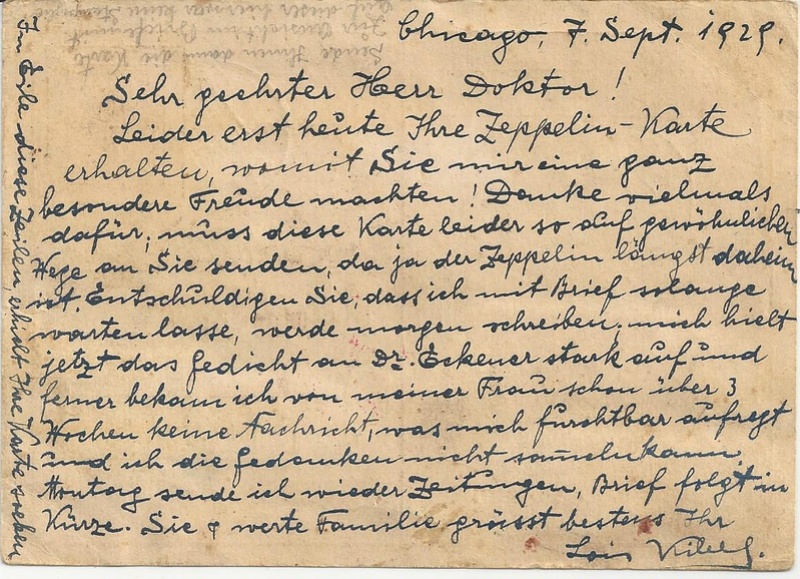 Chicago, 7. Sept. 1929.
Sehr geehrter Herr Doktor!
Leider erst heute Ihre Zeppelin-Karte
erhalten, womit Sie mir eine ganz
besondere Freude machten! Danke vielmals
dafür; muss diese Karte leider so auf gewöhnlichen
Wege an Sie senden, da ja der Zeppelin längst daheim
ist. Entschuldigen Sie, dass ich mit Brief solange
warten lasse, werde morgen schreiben; mich hielt
jetzt das Gedicht an Dr. Eckener stark auf und
ferner bekam ich von meiner Frau schon über 3
Wochen keine Nachricht, was mich furchtbar aufregt
und ich die Gedanken nicht sammeln kann.
Montag sende ich wieder Zeitungen, Brief folgt in
Kürze. Sie & werte Familie grüsst bestens Ihr
In Eile diese Zeilen, erhielt Ihre Karte soeben
Sende Ihnen damit die Karte